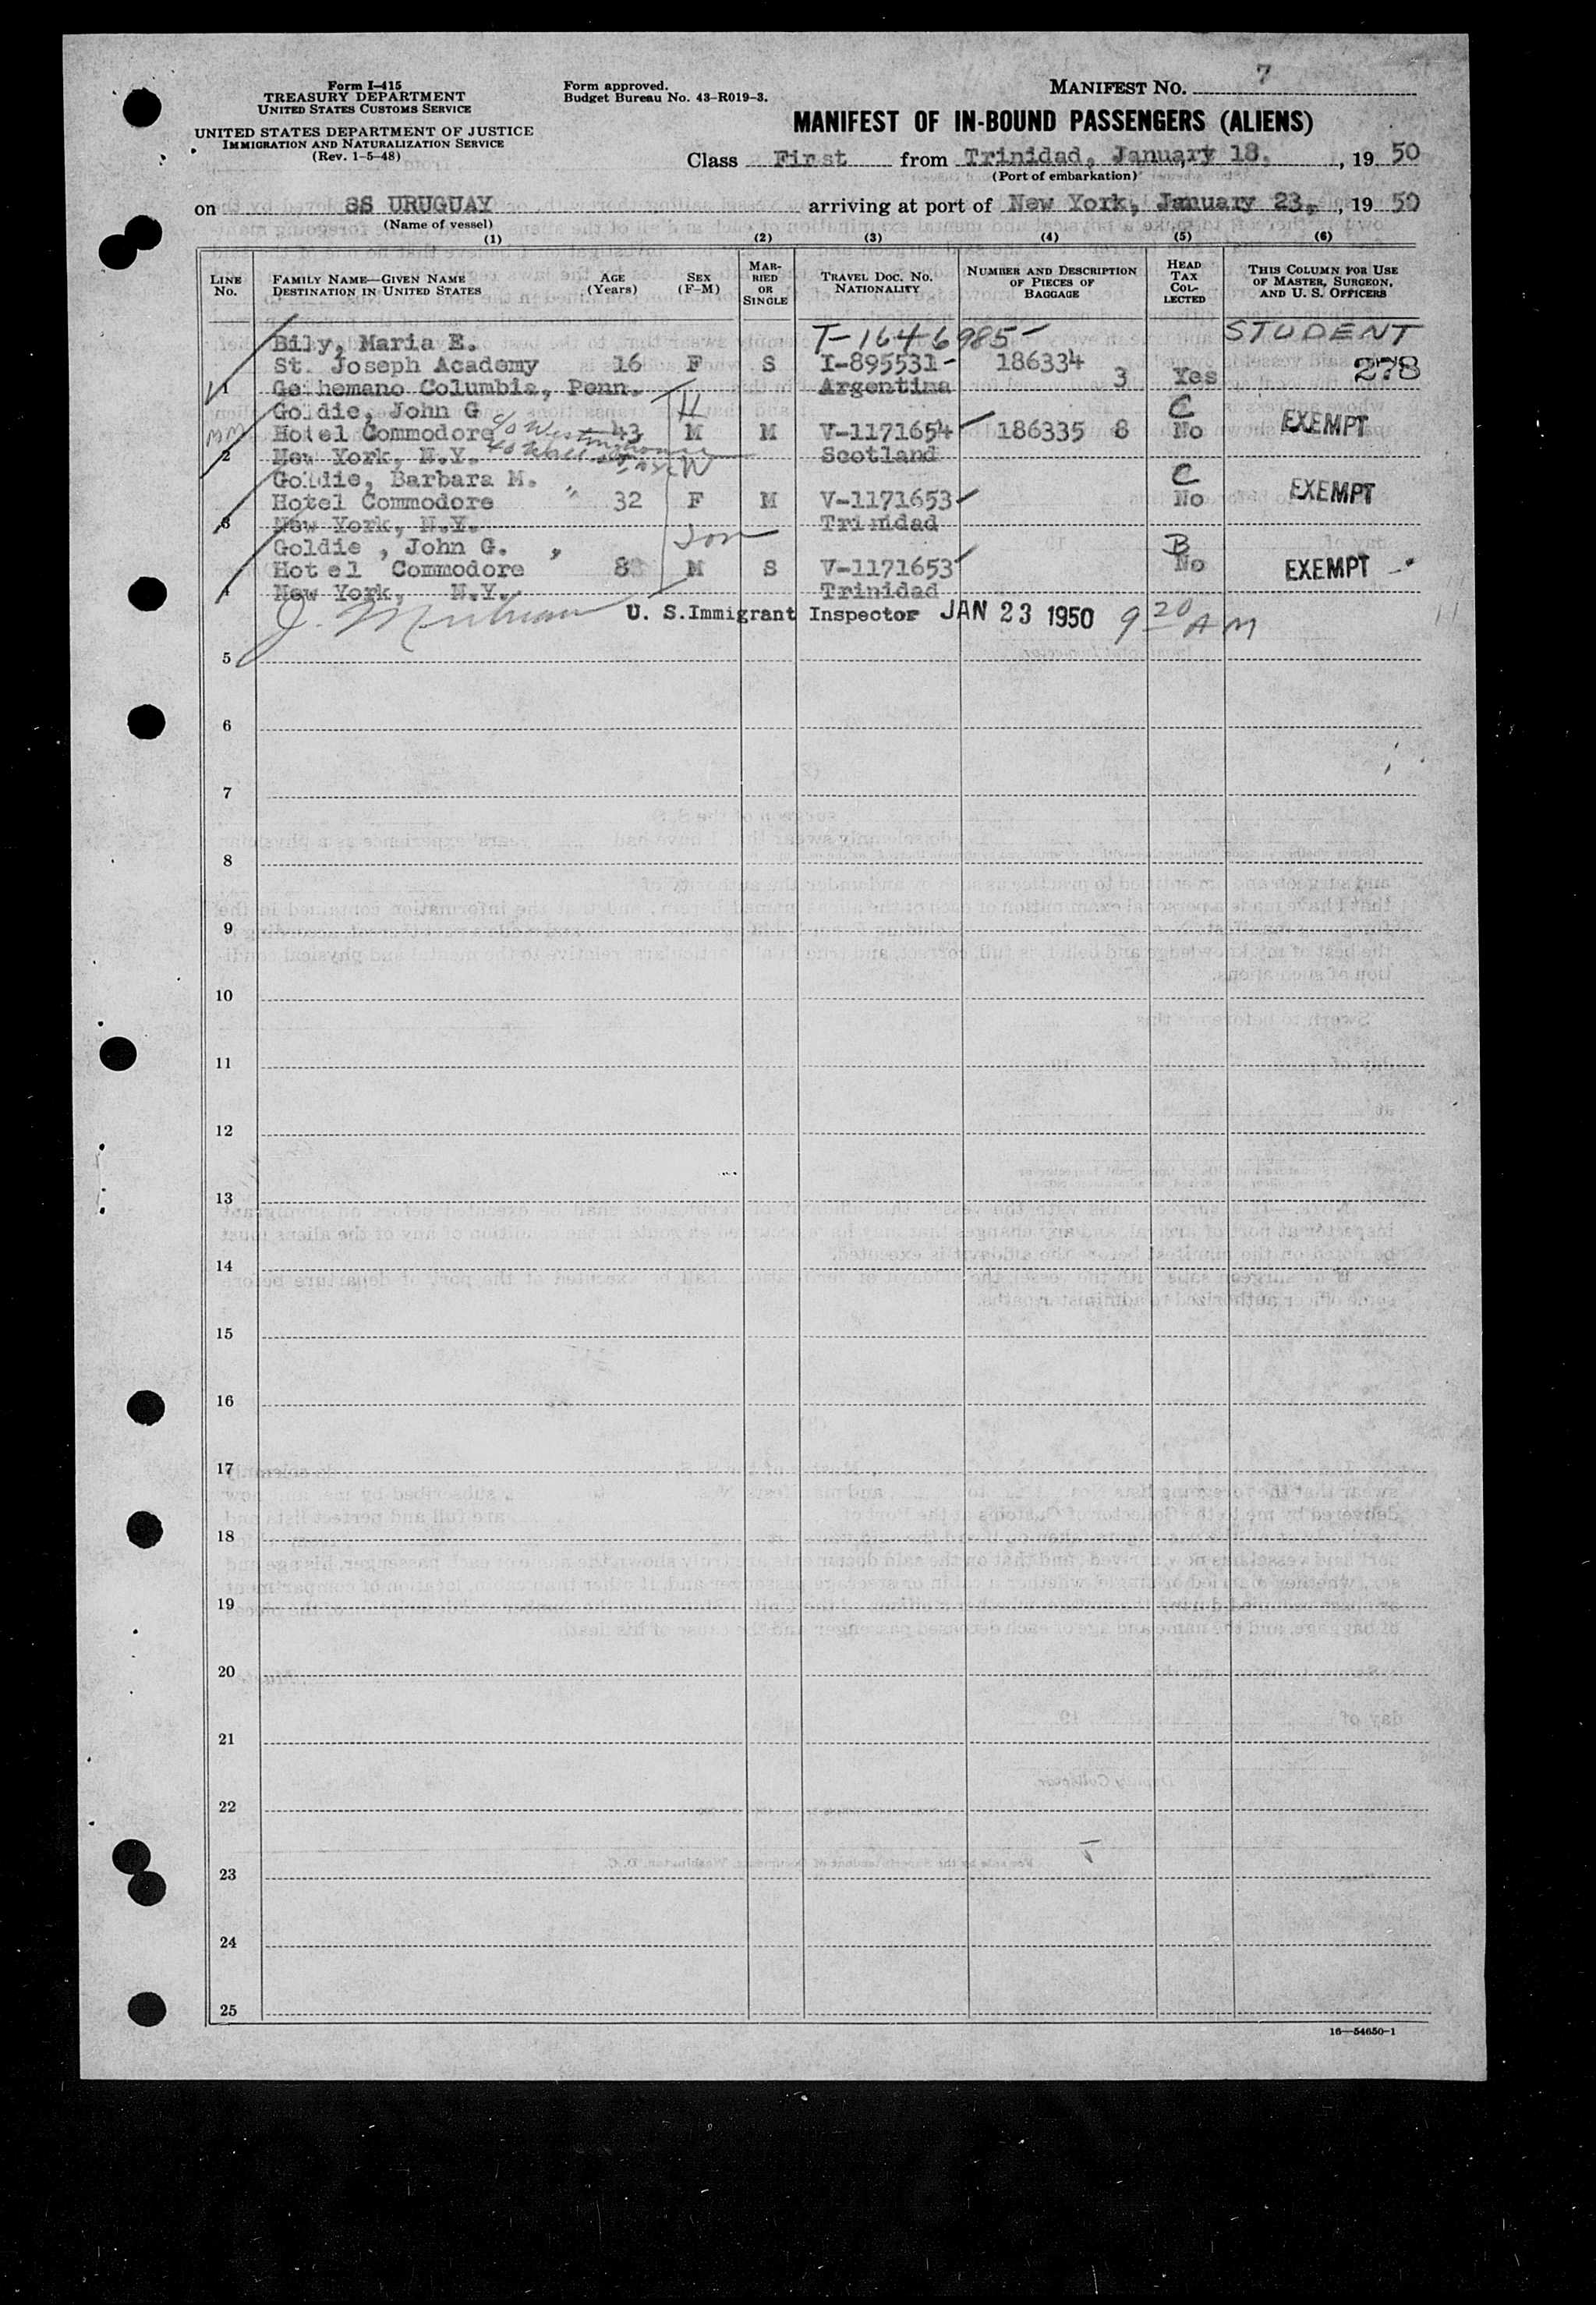 Form I-415
TREASURY DEPARTMENT
UNITED STATES CUSTOMS SERVICE
UNITED STATES DEPARTMENT OF JUSTICE
IMMIGRATION AND NATURALIZATION SERVICE
(Rev. 1-5-48)
Form approved.
Budget Bureau No. 43-R019-3.
MANIFEST NO. 7
MANIFEST OF IN-BOUND PASSENGERS (ALIENS)
Class First from Trinidad, January 18, , 19 50
(Port of embarkation)
on SS URUGUAY arriving at port of New York, January 23, , 19 50
(Name of vessel)
(1) (2) (3) (4) (5) (6)
LINE NO. FAMILY NAME—GIVEN NAME DESTINATION IN UNITED STATES AGE (Years) SEX (F-M) MARRIED OR SINGLE TRAVEL DOC. NO. NATIONALITY NUMBER AND DESCRIPTION OF PIECES OF BAGGAGE HEAD TAX COLLECTED THIS COLUMN FOR USE OF MASTER, SURGEON, AND U. S. OFFICERS
Bily, Maria E. T-1646985- STUDENT
St. Joseph Academy 16 F S I-895531- 186334
1 Gethemano Columbia, Penn. Argentina 3 Yes 278
Goldie, John G H C
Hotel Commodore 43 M M V-1171654 186335 8 No EXEMPT
2 New York, N.Y. Scotland
Goldie, Barbara M. W C
Hotel Commodore " 32 F M V-1171653 No EXEMPT
3 New York, N.Y. Trinidad
Goldie , John G. Son B
Hotel Commodore 8 M S V-1171653 No EXEMPT
4 New York, N.Y. Trinidad
U. S. Immigrant Inspector JAN 23 1950 9 20 AM
5
6
7
8
9
10
11
12
13
14
15
16
17
18
19
20
21
22
23
24
25
16—54650-1